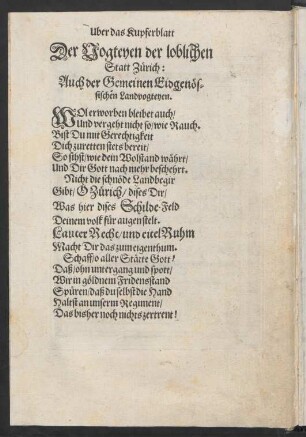 Uber das Kupferblatt
Der Vogteyen der loblichen
Statt Zürich:
Auch der Gemeinen Eidgenös-
sischen Landvogteyen.
WOlerworben bleibet auch/
Und vergeht nicht so/ wie Rauch.
Bist Du mit Gerechtigkeit
Dich zuretten stets bereit/
So sihst/ wie dein Wolstand währt/
Und Dir Gott nach mehr beschehrt.
Nicht die schnöde Landbegir
Gibt/ O Zürich/ dises Dir/
Was hier dises Schilde-Feld
Deinem volk für augen stelt.
Lauter Recht/ und eitel Ruhm
Macht Dir das zum eigenthum.
Schaff/ o aller Stätte Gott!
Daß/ ohn untergang und spott/
Wir in göldnem Fridensstand
Spüren/ daß du selbst die Hand
Haltst an unserm Regiment/
Das bisher noch nichts zertrent!